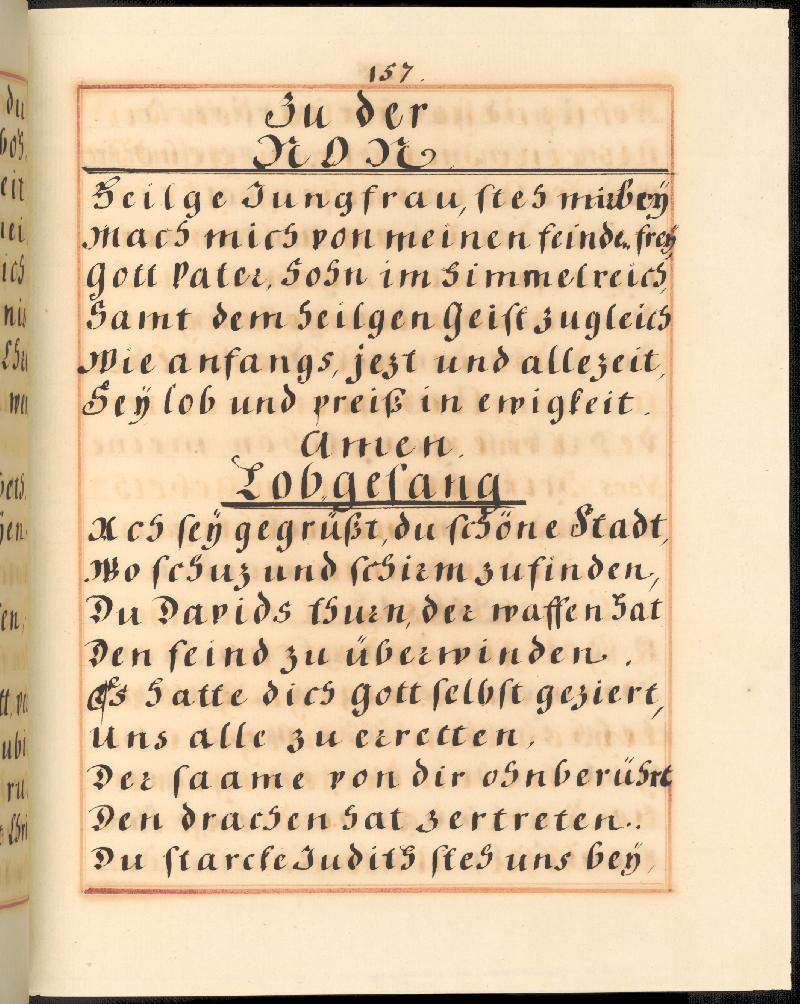 157.
Zu der
NON.
Heilge Jungfrau, steh mir bey
Mach mich von meinen feinde, frey
Gott Vater, Sohn im Himmelreich,
Samt dem heilgen Geist zugleich
Wie anfangs, jezt und allezeit,
Sey lob und preiß in ewigkeit.
Amen.
Lobgesang
Ach seÿ gegrüßt, du schöne Stadt,
Wo schuz und schirm zufinden,
Du Davids thurn, der waffen hat
Den feind zu überwinden.
Es hatte dich Gott selbst geziert,
Uns alle zu erretten,
Der saame von dir ohnberührt
Den drachen hat zertreten.
Du starcke Judith steh uns beÿ,
du
eit
ich
nis